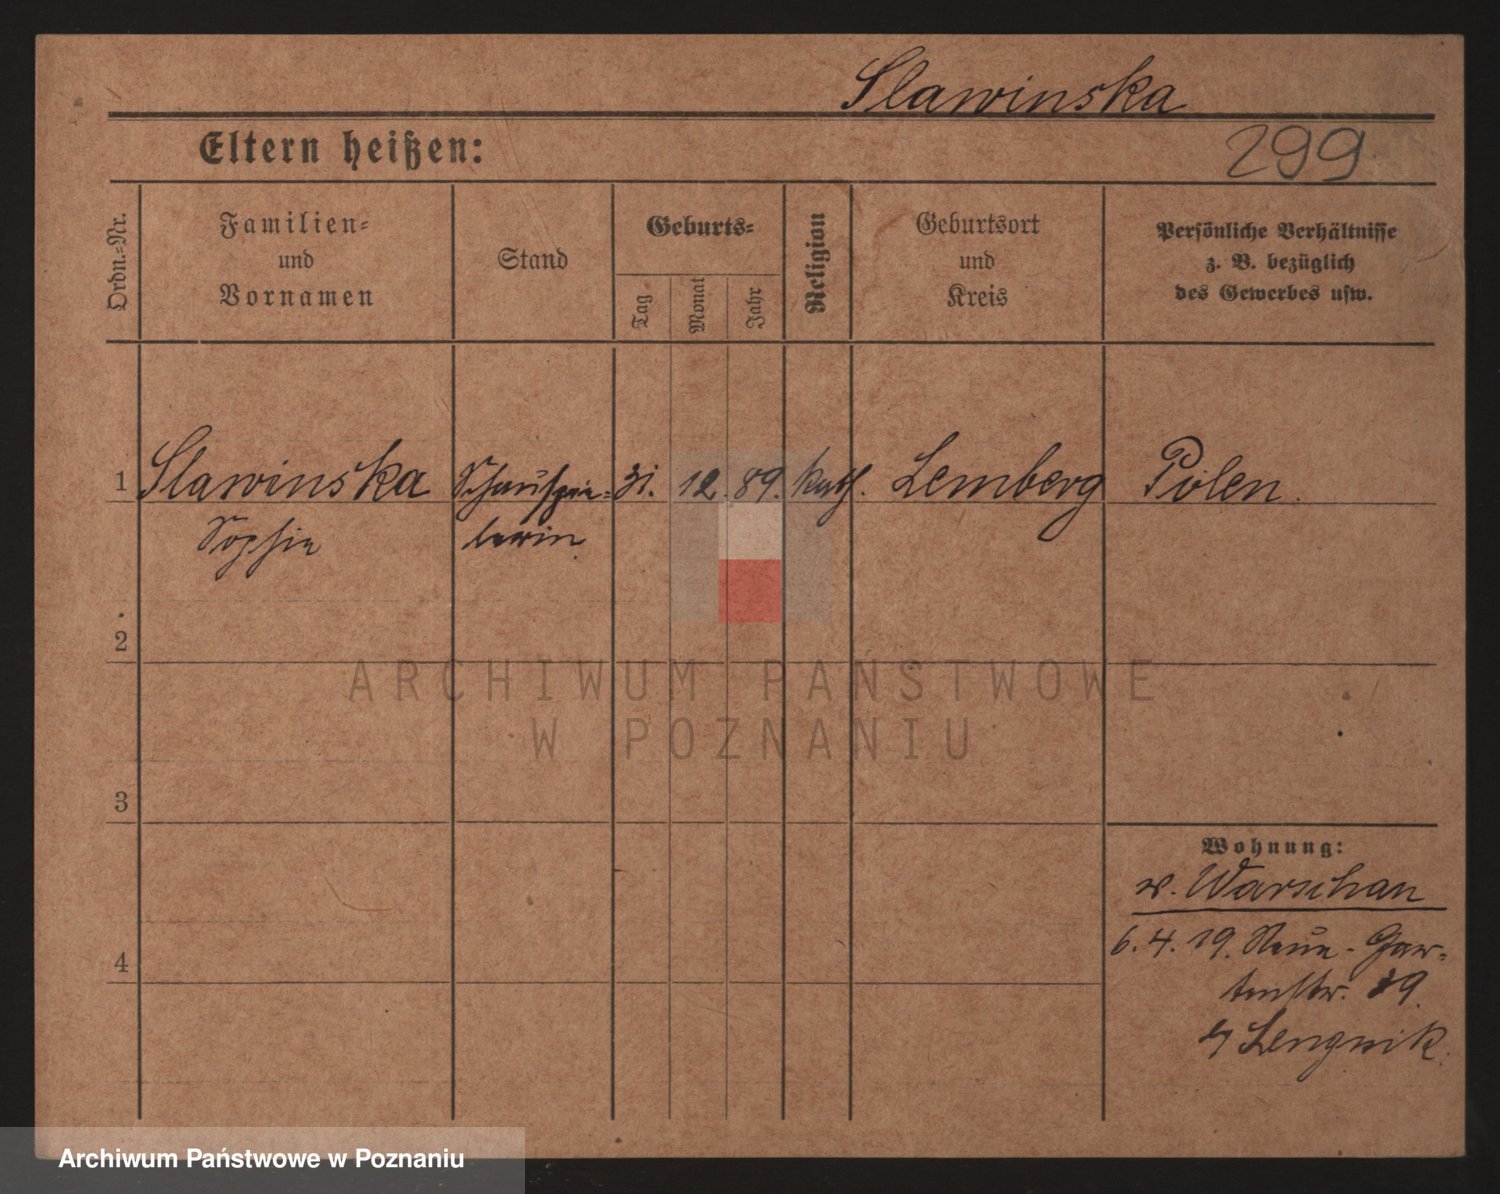 Slawinska
Eltern heißen:
299
Ordn.-Nr.
Familien-
und
Vornamen
Stand
Geburts-
Tag
Monat
Jahr
Religion
Geburtsort
und
Kreis
Persönliche Verhältnisse
z. B. bezüglich
des Gewerbes usw.
1
Slawinska
Sophie
Schauspie-
lerin
31. 12. 89.
kath.
Lemberg
Polen.
2
3
4
ARCHIWUM PAŃSTWOWE
W POZNANIU
Wohnung:
v. Warschau
6. 4. 19. Neue-Gar-
tenstr.
Lengnik.
Archiwum Państwowe w Poznaniu